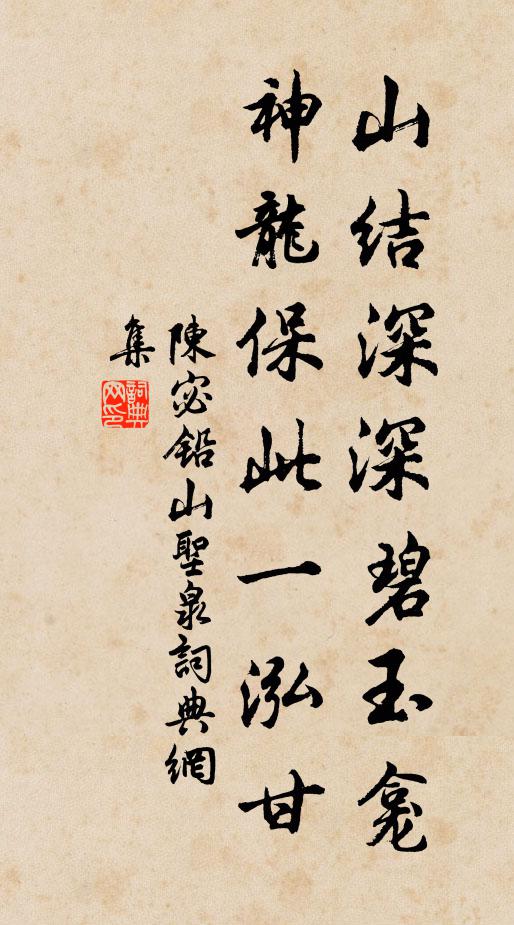 山結深深碧玉龕
神龍保此一泓甘
陳宓鉛山聖泉詞典網
集
詞典网印